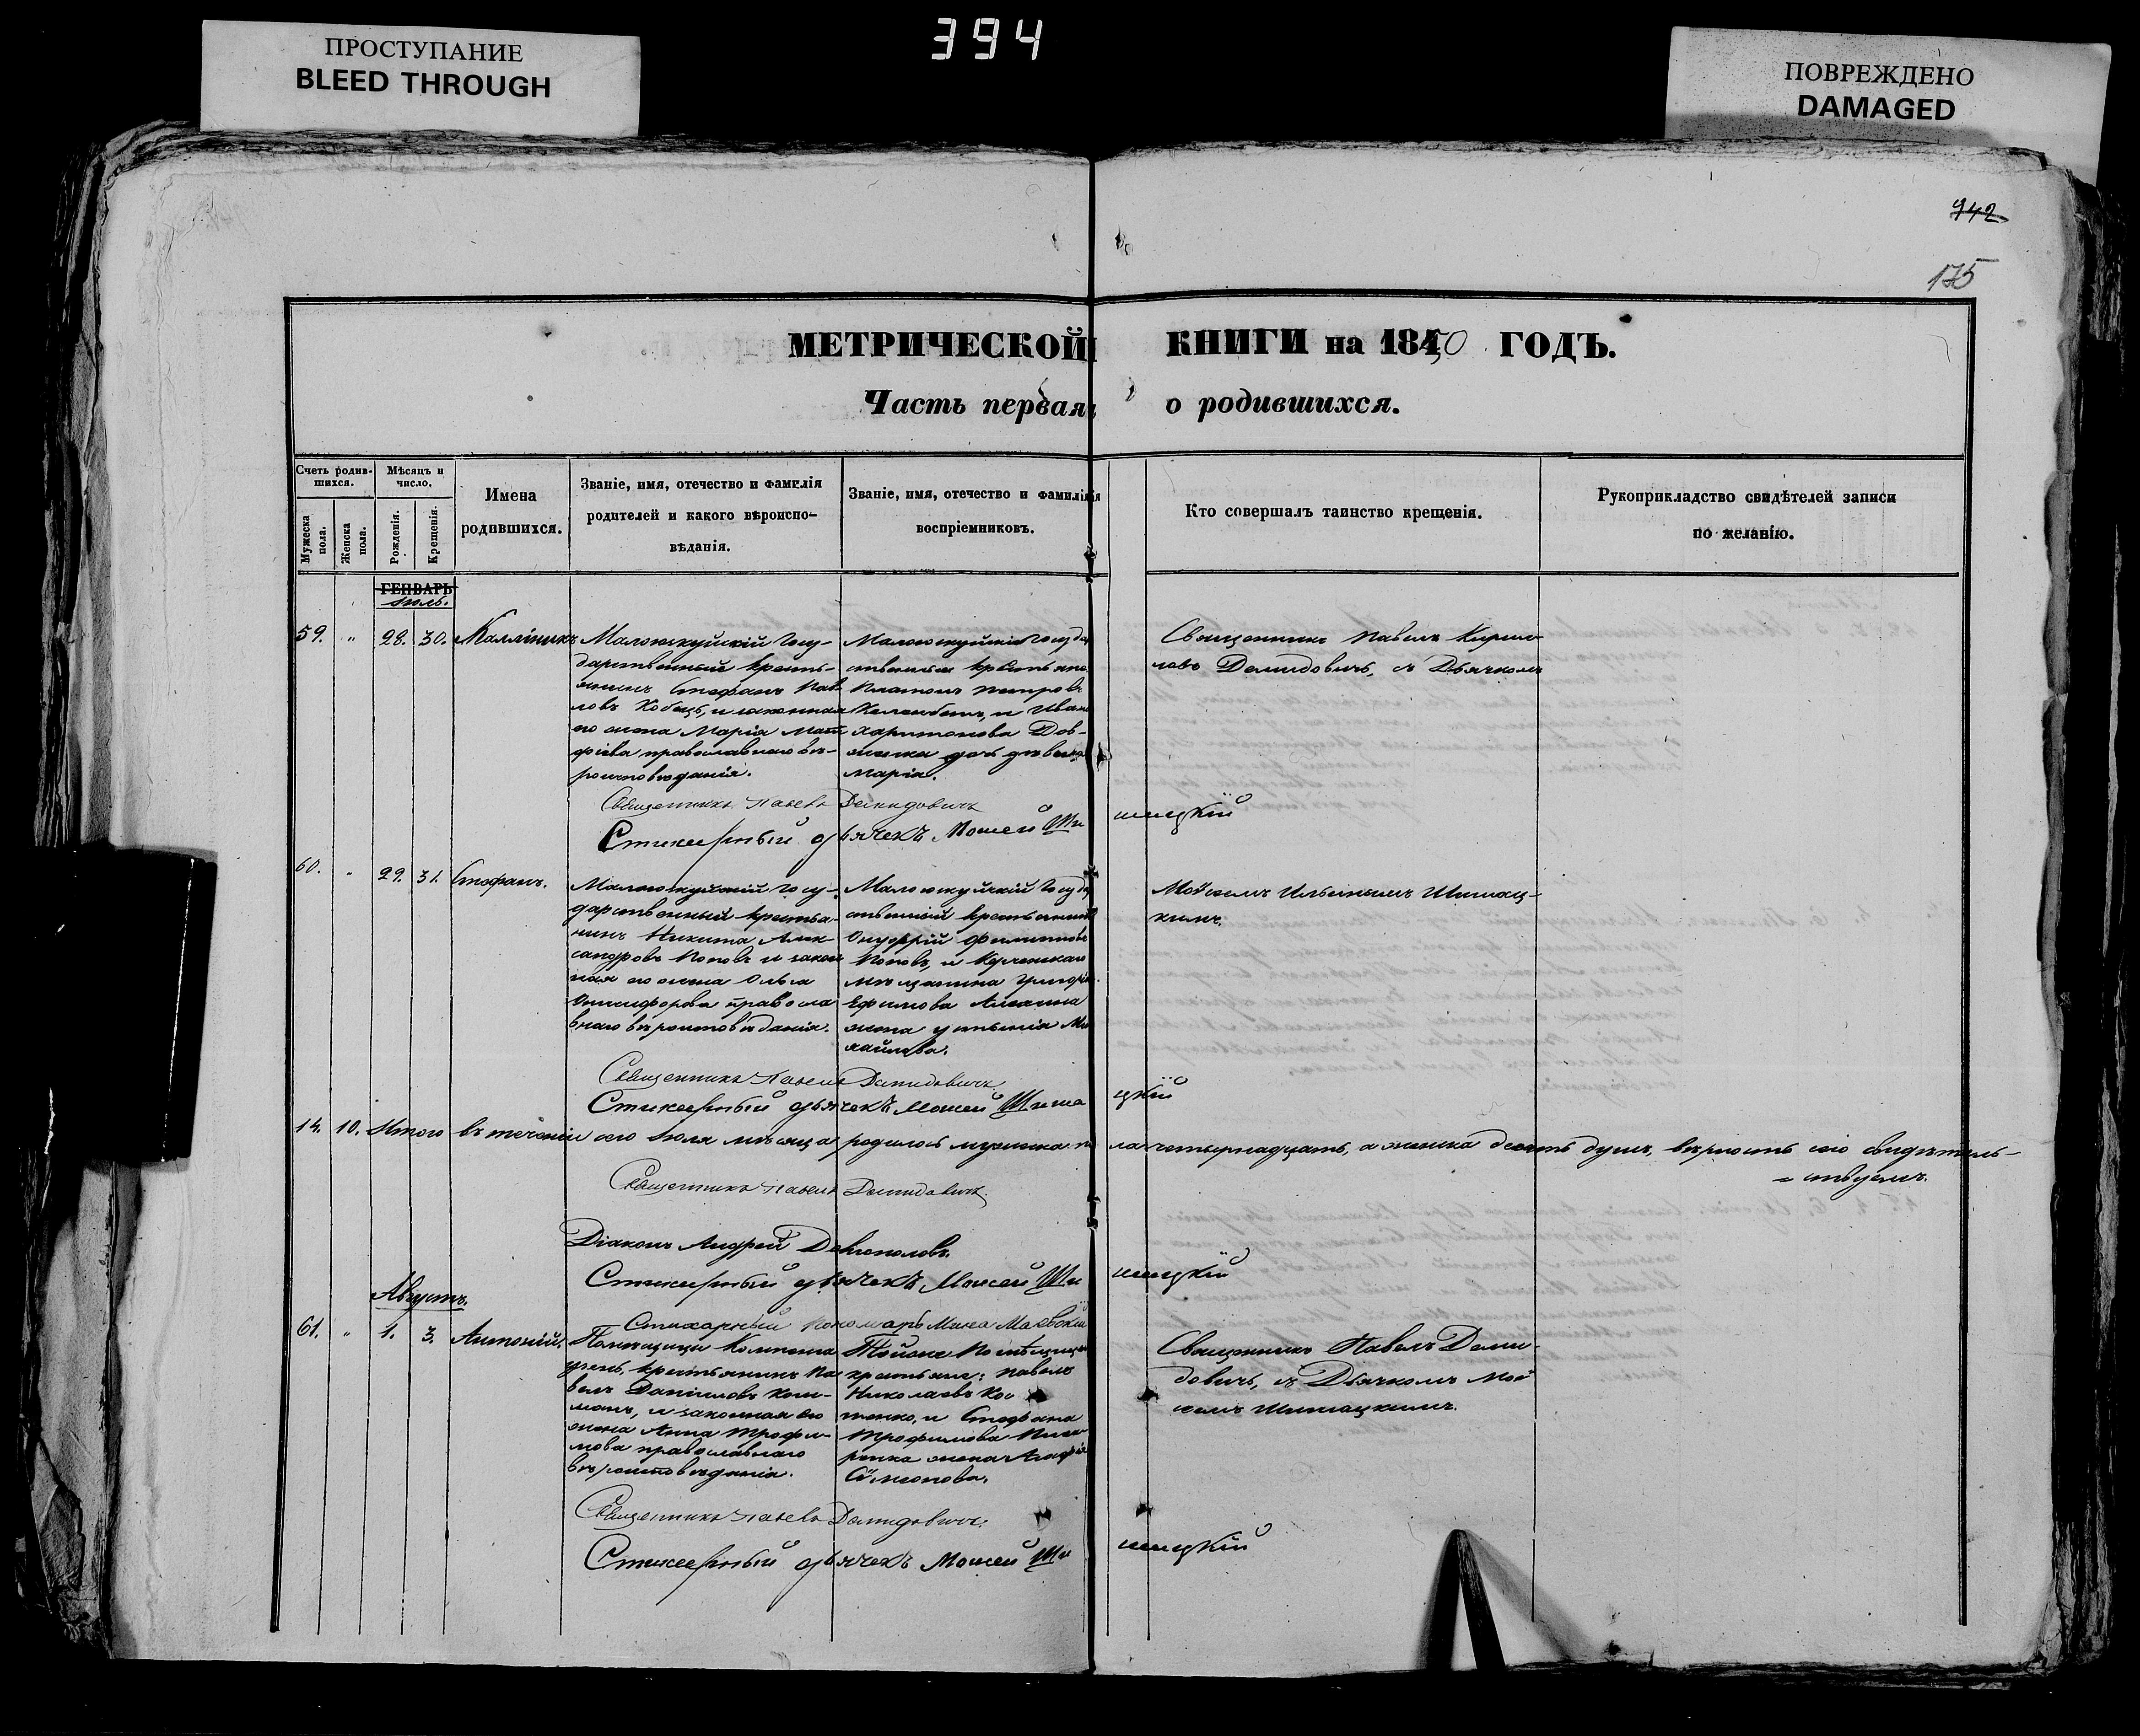 394
ПРОСТУПАНИЕ
BLEED THROUGH
ПОВРЕЖДЕНО
DAMAGED
942
175
МЕТРИЧЕСКОЙ КНИГИ на 1850 ГОДЪ.
Часть первая, о родившихся.
Счетъ родив-
шихся.
Мужеска пола.
Женска пола.
Мѣсяцъ и
число.
Рожденія.
Крещенія.
Имена
родившихся.
Званіе, имя, отечество и фамилія
родителей и какого вѣроиспо-
вѣданія.
Званіе, имя, отечество и фамилія
воспріемниковъ.
Кто совершалъ таинство крещенія.
Рукоприкладство свидѣтелей записи
по желанію.
ГЕНВАРЬ
Іюль.
59. " 28. 30. Каллиникъ
дарственный кресть-
янинъ Стефанъ Пав
ловъ Кобецъ, и законная
его жена Марія Мат
фіева православнаго вѣ-
роисповѣданія.
ственные крестьяне
Платонъ Петровъ
и Иванa
Харитонова Дов-
женка дочь дѣвица
Марія.
Священникъ Павелъ Кирил-
ловъ Демидовичъ, съ Дьячкомъ
Священникъ Павелъ Демидовичъ
Стихарный дьячекъ Мойсей Шишацкій
60. " 29. 31. Стефанъ.
дарственный крестья-
нинъ Никита Алек-
сандровъ Поповъ и закон
ная его жена Ольга
Онисифорова правосла
внаго вѣроисповѣданія.
ственный крестьянинъ
Онуфрій Филиповъ
Поповъ, и
мѣщанина Григорія
Ефимова
жена Ми
хайлова.
Мойсеемъ Ильинымъ Шишац-
кимъ.
Священникъ Павелъ Демидовичъ
Стихарный дьячекъ Мойсей Шишацкій
14. 10. Итого въ теченіи сего Іюля мѣсяца родилось мужеска пола четырнадцать, а женска десять душъ, вѣрность сего свидѣтель-
= ствуемъ.
Священникъ Павелъ Демидовичъ.
Діаконъ Андрей Довгополовъ.
Стихарный дьячекъ Мойсей Шишацкій
Стихарный Пономарь Мина Маевскій
Августъ.
61. " 1. 3. Антоній.
Помѣщицы
крестьянинъ Па
велъ Даніиловъ
и законная его
жена Анна Трофи-
мова православнаго
вѣроисповѣданія.
Тойже Помѣщицы
крестьяне: Павелъ
Николаевъ
и Стефана
Трофимова
жена Агафія
Симеонова.
Священникъ Павелъ Деми-
довичъ, съ Дьячкомъ Мой
сеемъ Шишацкимъ.
Священникъ Павелъ Демидовичъ.
Стихарный дьячекъ Мойсей Шишацкій